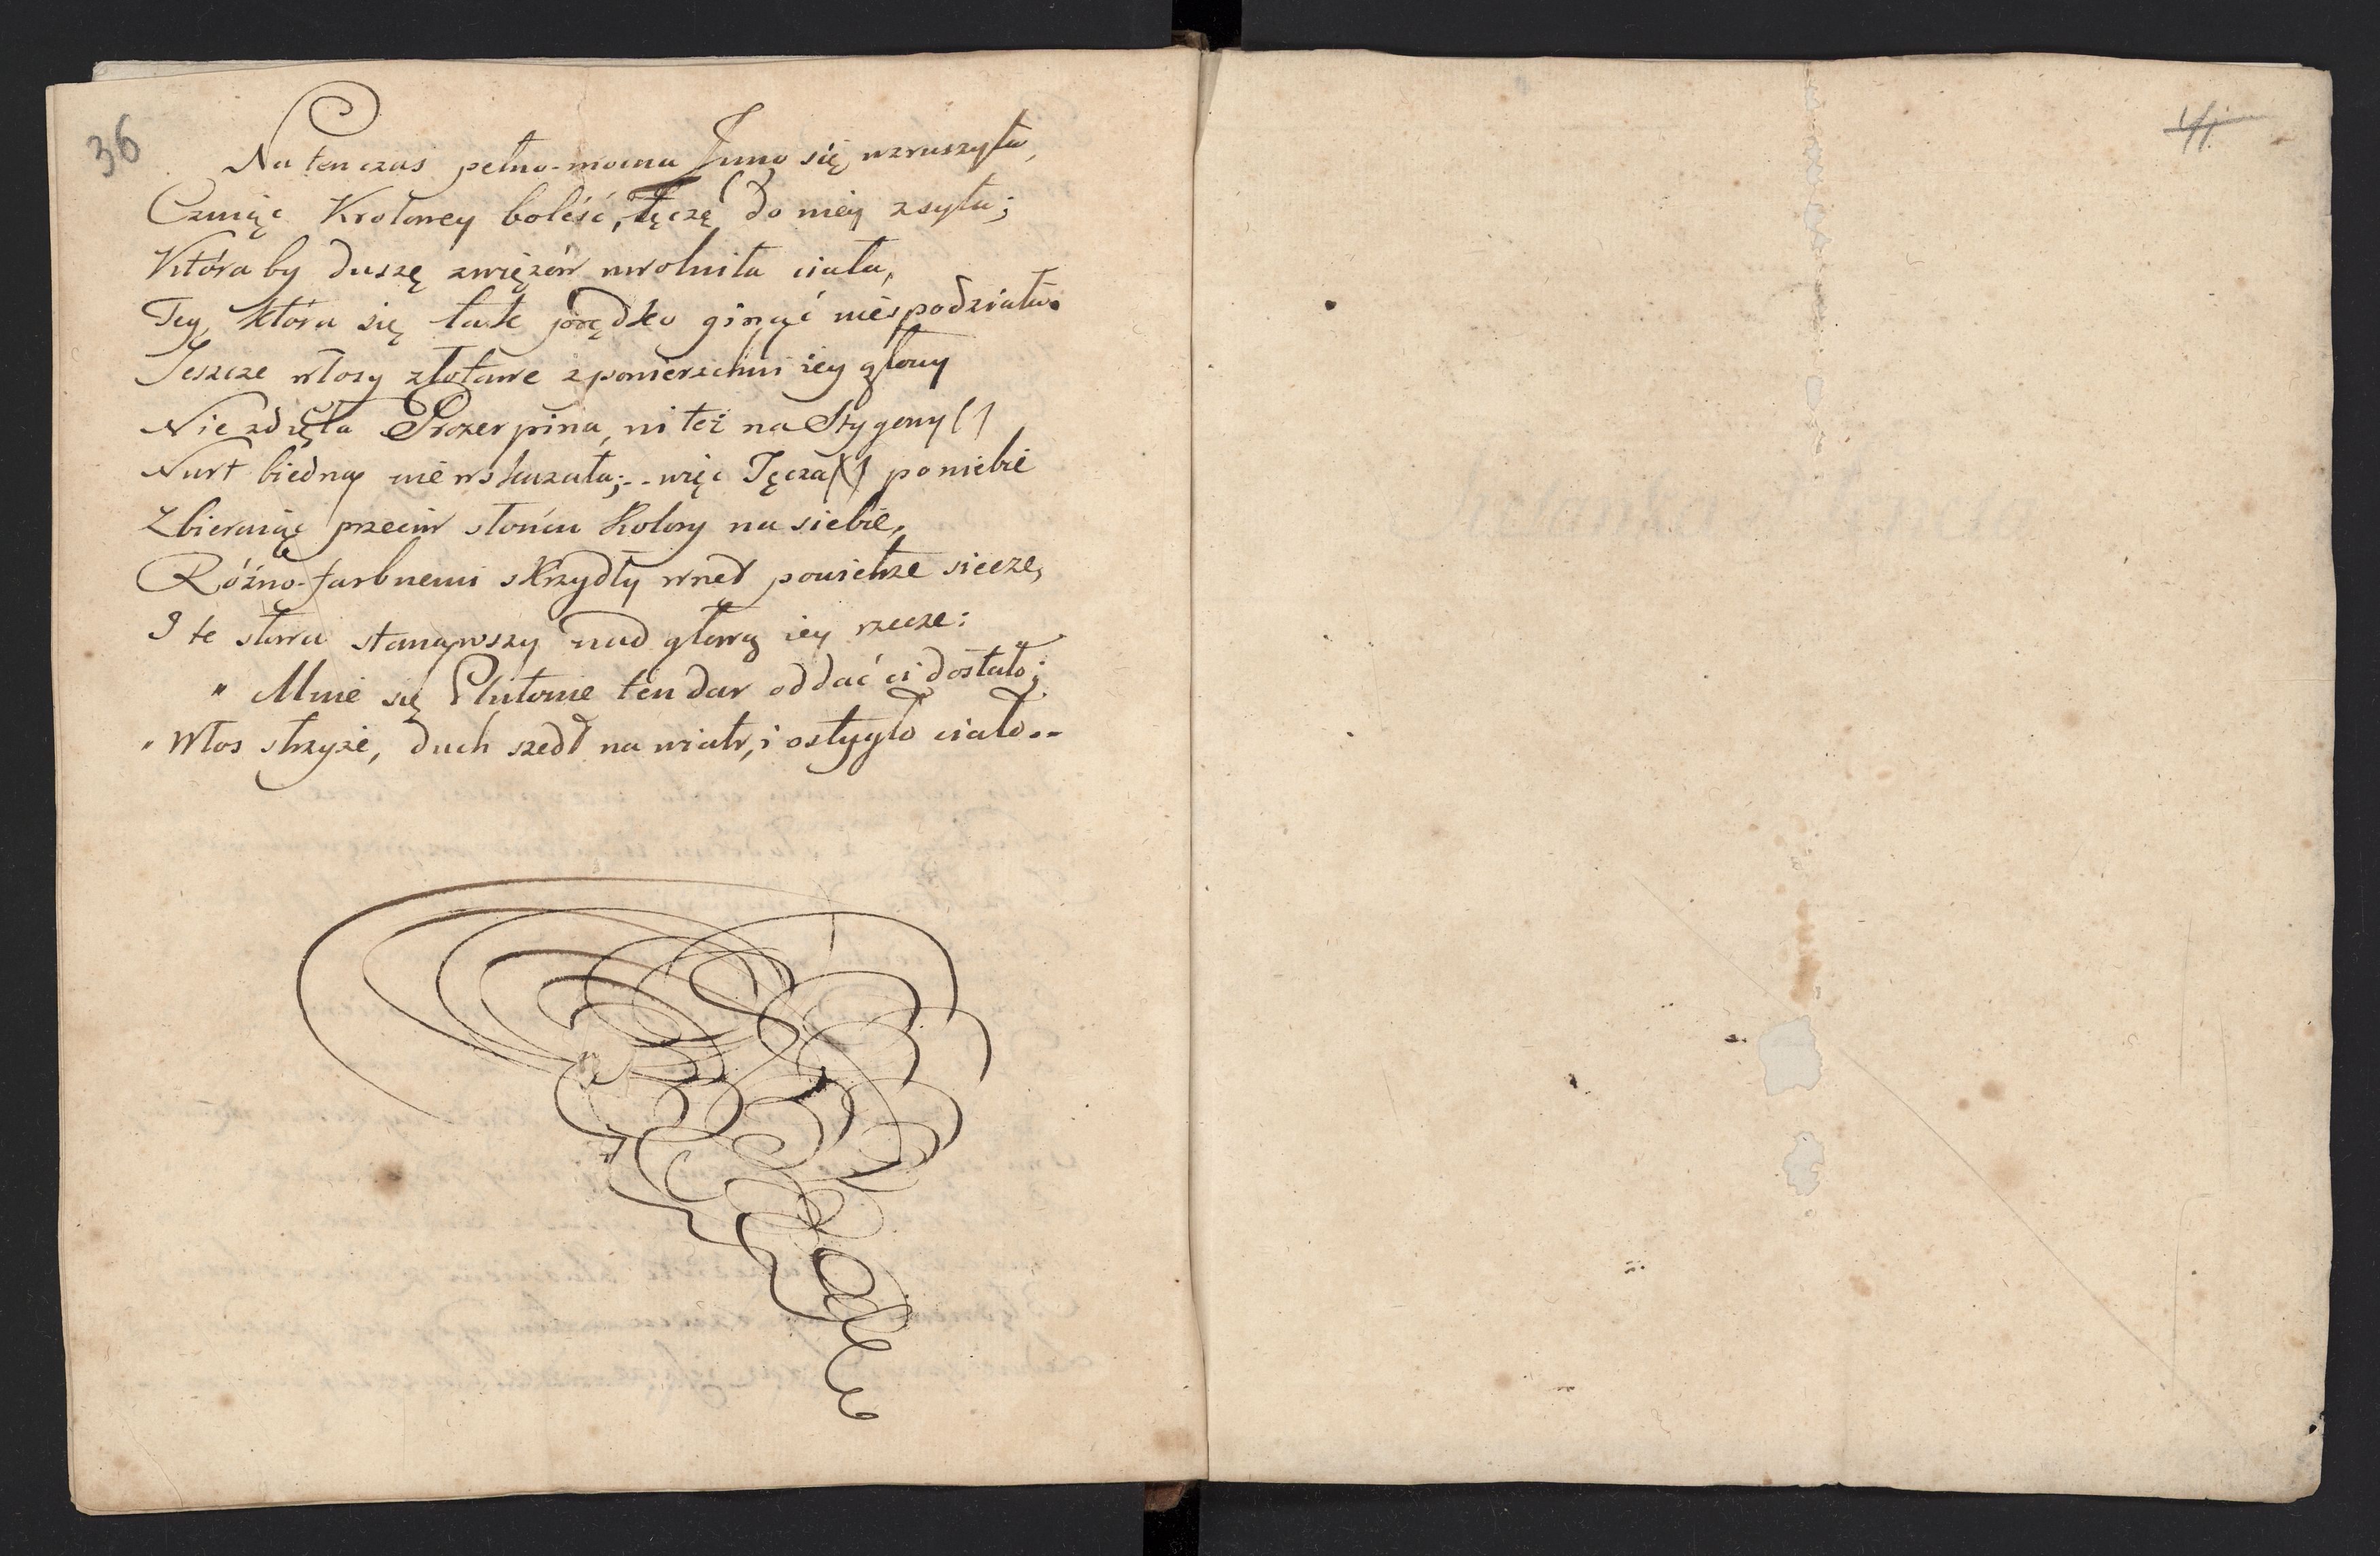 36
Na ten czas pełno-mocna Juno się wzruszyła,
Czuiąc Krolowey boleść, Tęczę do niey zsyła;
Któraby duszę zwięzów uwolniła ciała,
Tey, która się tak prędko ginąć niespodziała.
Jeszcze włosy złotawe zpowierzchni iey głowy
Nie zdięła Prozerpina, ni też na Stygowy ( )
Nurt biedną nie wskazała; -- więc Tęcza ( ) po niebie
Zbieraiąc przeciw słońcu Kolory na siebie,
Różno-farbnemi skrzydły wnet powietrze siecze,
I te słowa stanąwszy nad głową iey rzecze:
" Mnie się Plutonie ten dar oddać ci dostało;
" Włos strzyże, duch szedł na wiatr, i ostygło ciało..
41